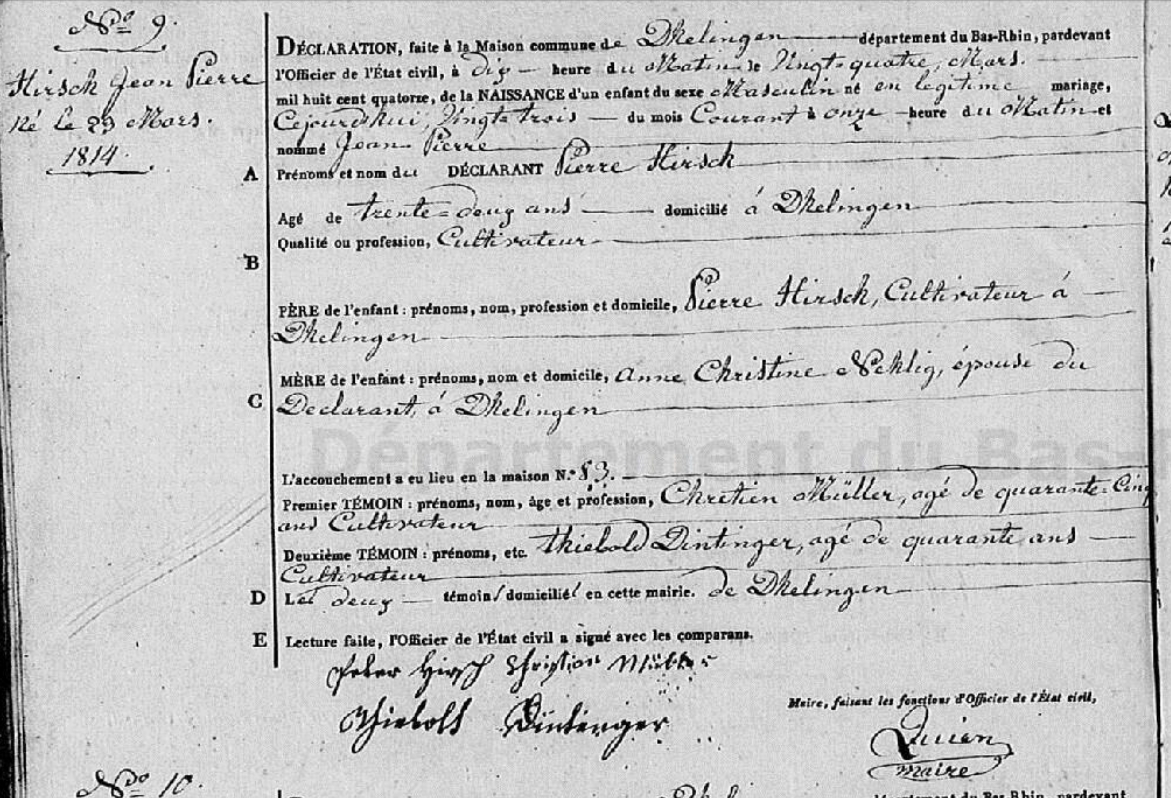 N.º 9.
Hirsch Jean Pierre
né le 23 Mars.
1814.
DÉCLARATION, faite à la Maison commune de Dhelingen département du Bas-Rhin, pardevant
l'Officier de l'État civil, à dix heure du Matin le Vingt quatre, Mars.
mil huit cent quatorze, de la NAISSANCE d'un enfant du sexe Masculin né en légitime mariage,
Cejourdhui, Vingt trois du mois Courant à onze heure du Matin et
nommé Jean Pierre
A Prénoms et nom du DÉCLARANT Pierre Hirsch
Agé de trente-deux ans domicilié à Dhelingen
Qualité ou profession, Cultivateur
B
PÈRE de l'enfant : prénoms, nom, profession et domicile, Pierre Hirsch, Cultivateur à
Dhelingen
MÈRE de l'enfant : prénoms, nom et domicile, Anne Christine Nehlig, épouse du
C Declarant, à Dhelingen
Département du Bas-R
L'accouchement a eu lieu en la maison N.º 83.
Premier TÉMOIN : prénoms, nom, âge et profession, Chrétien Müller, agé de quarante-Cinq
ans Cultivateur
Deuxième TÉMOIN : prénoms, etc. Thiebold Dintinger, agé de quarante ans
Cultivateur
D Les deux témoins domiciliés en cette mairie. de Dhelingen
E Lecture faite, l'Officier de l'État civil a signé avec les comparans.
Peter Hirsch Christian Müller
Thiebolt Dintenger
Maire, faisant les fonctions d'Officier de l'État civil,
Quien
maire
N.º 10.
du Bas-Rhin, pardevant